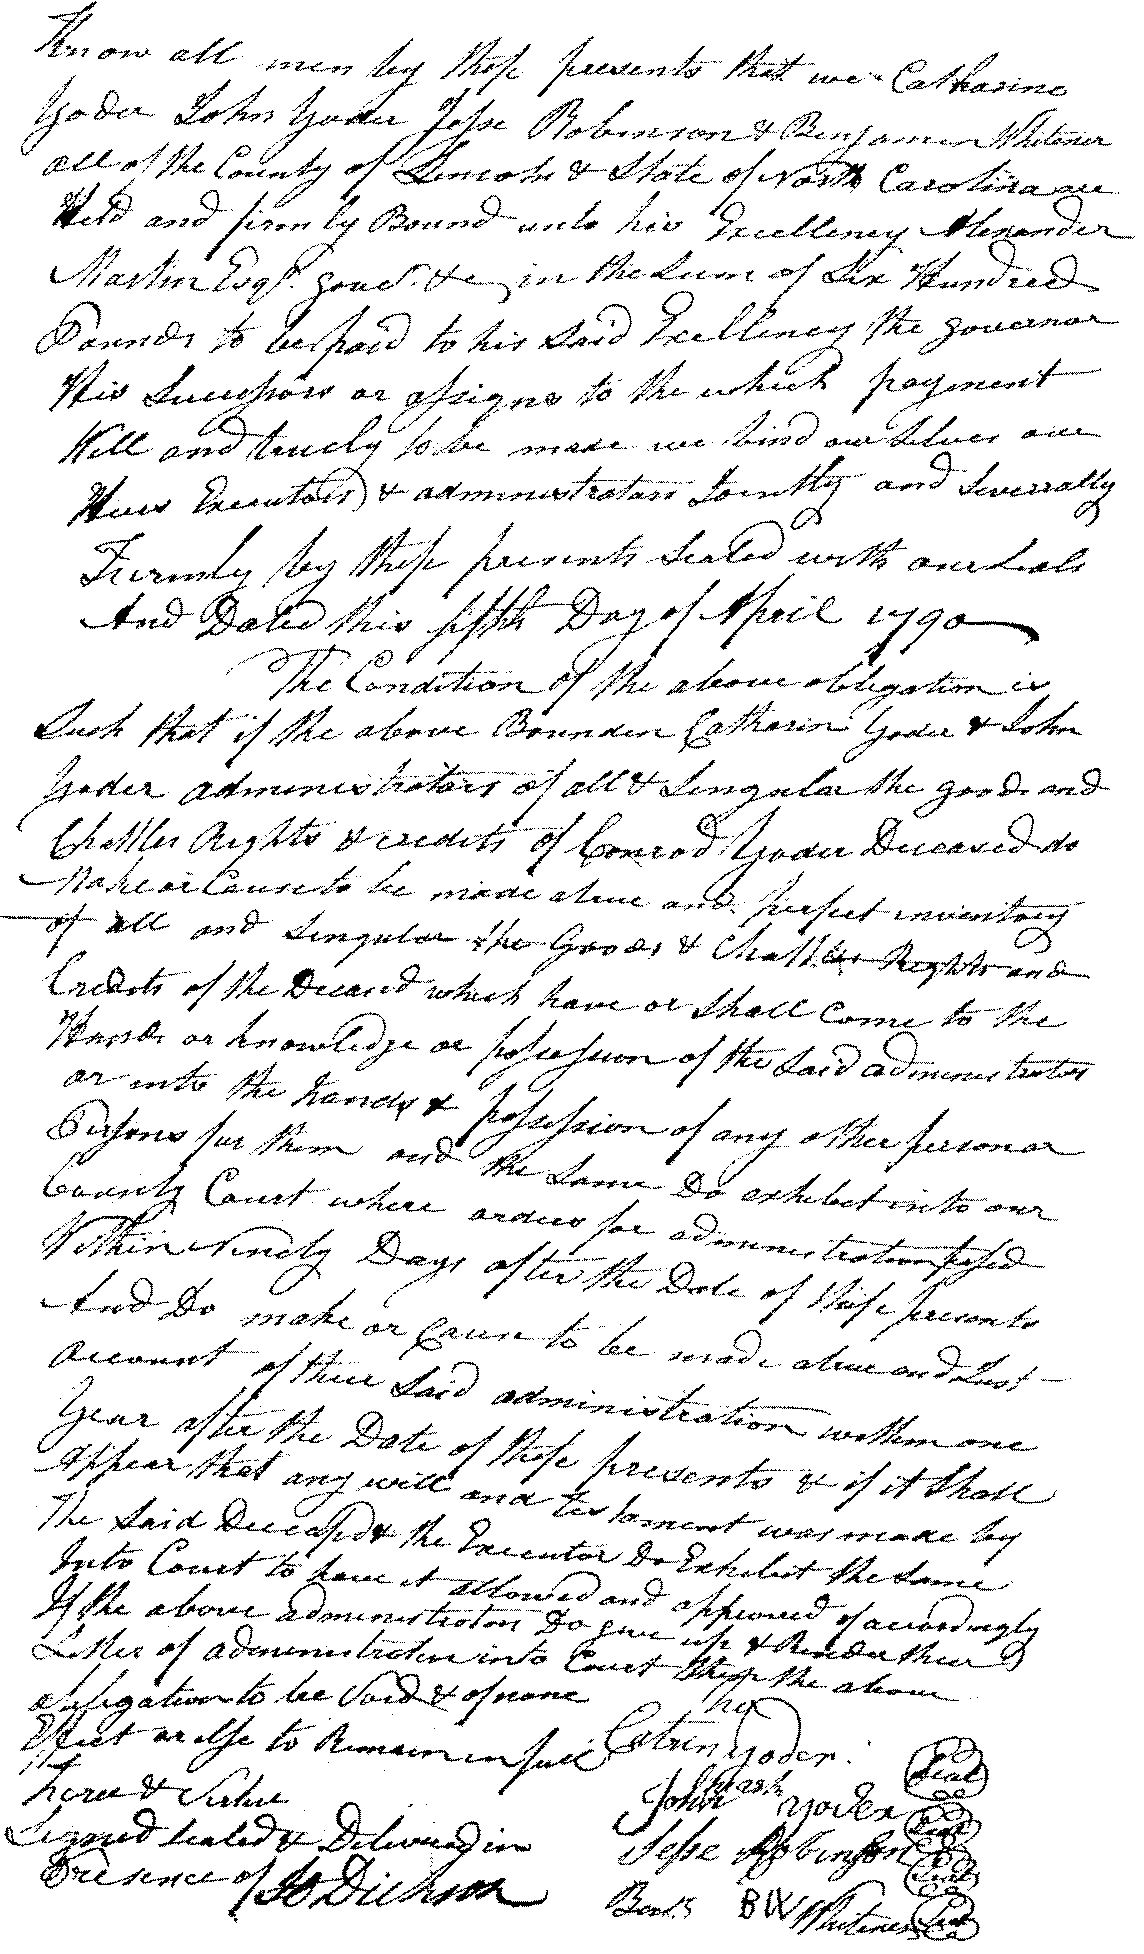 Know all men by these presents that we Catharine
Yoder John Yoder Jesse Robinson & Benjamin Whitener
all of the County of Lincoln & State of North Carolina are
Held and firmly Bound unto his Excellency Alexander
Martin Esqr. gover. &c in the Sum of Six Hundred
Pounds to be paid to his Said Excellency the governor
His Successors or assigns to the which payment
Well and truely to be made we bind ourselves our
Heirs Executors & administrators Jointly and Severrally
Firmly by these presents Sealed with our Seals
And Dated this fifth Day of April 1790
The Condition of the above obligation is
Such that if the above Bounden Catharin Yoder & John
Yoder administrators of all & Singular the goods and
Chattles Rights & credits of Conrod Yoder Deceased do
Make or Cause to be made a true and perfect inventory
of all and Singular the Goods & Chattles Rights and
Credits of the Deceasd which have or Shall come to the
Hands or knowledge or possession of the Said administrators
or into the hands & possession of any other person or
Persons for them and the Same Do exhibet into our
County Court where orders for administration passed
Within Ninety Days after the Date of these presents
And Do make or Cause to be made a true and Just
account of their Said administration within one
Year after the Date of these presents & if it Shall
Appear that any will and testament was made by
The Said Deceasd & the Executor Do Exhebit the Same
Into Court to have it allowed and approved of accordingly
If the above administrators Do give up & Render their
Letter of administration into Court then the above
obligation to be Void & of none
Effect or else to Remain in full
force & Virtue
Signed Sealed & Delivered in
Presence of Jo Dickson
her
Catrin Yoder Seal
mark
John Yoder Seal
Jesse Robinson Seal
Benj. BW Whitener Seal